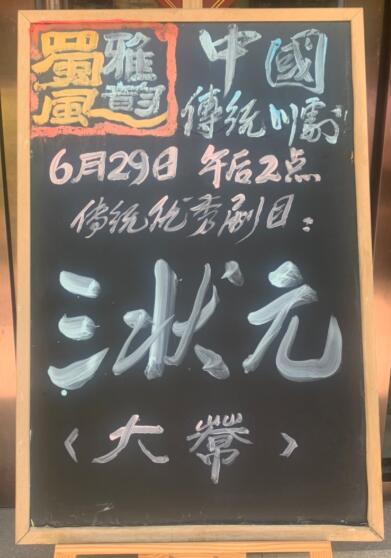 蜀風雅韵
中國
傳統川劇
6月29日 午后2点
传统优秀剧目：
三状元
〈大幕〉